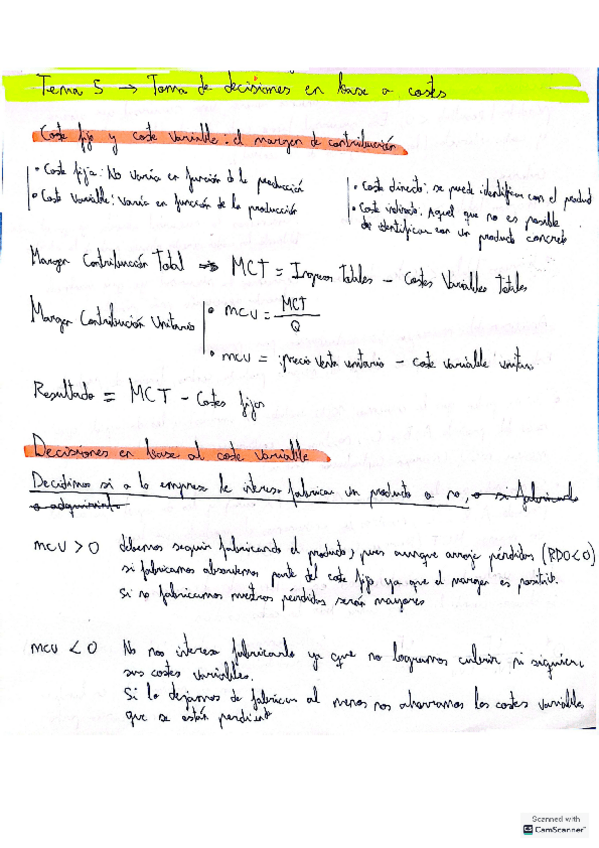 Tema 5 → Toma de decisiones en base a costes
Coste fijo y coste variable: el margen de contribución
• Coste fijo: No varía en función de la producción
• Coste Variable: Varía en función de la producción
• Coste directo: se puede identificar con el product
• Coste indirecto: Aquel que no es posible
de identificar con un producto concreto
Margen Contribución Total → MCT = Ingresos Totales - Costes Variables Totales
Margen Contribución Unitario
• mcu = MCT / Q
• mcu = precio venta unitario - coste variable unitario
Resultado = MCT - Costes fijos
Decisiones en base al coste variable
Decidimos si a la empresa le interesa fabricar un producto o no, o si fabricarlo
o adquirirlo
mcu > 0 debemos seguir fabricando el producto, pues aunque arroje pérdidas (RDO<0)
si fabricamos absorbemos parte del coste fijo ya que el margen es positivo.
Si no fabricamos nuestras pérdidas serán mayores
mcu < 0 No nos interesa fabricarlo ya que no logramos cubrir ni siquiera
sus costes variables.
Si lo dejamos de fabricar al menos nos ahorramos los costes variables
que se están perdiendo
Scanned with
CS CamScanner